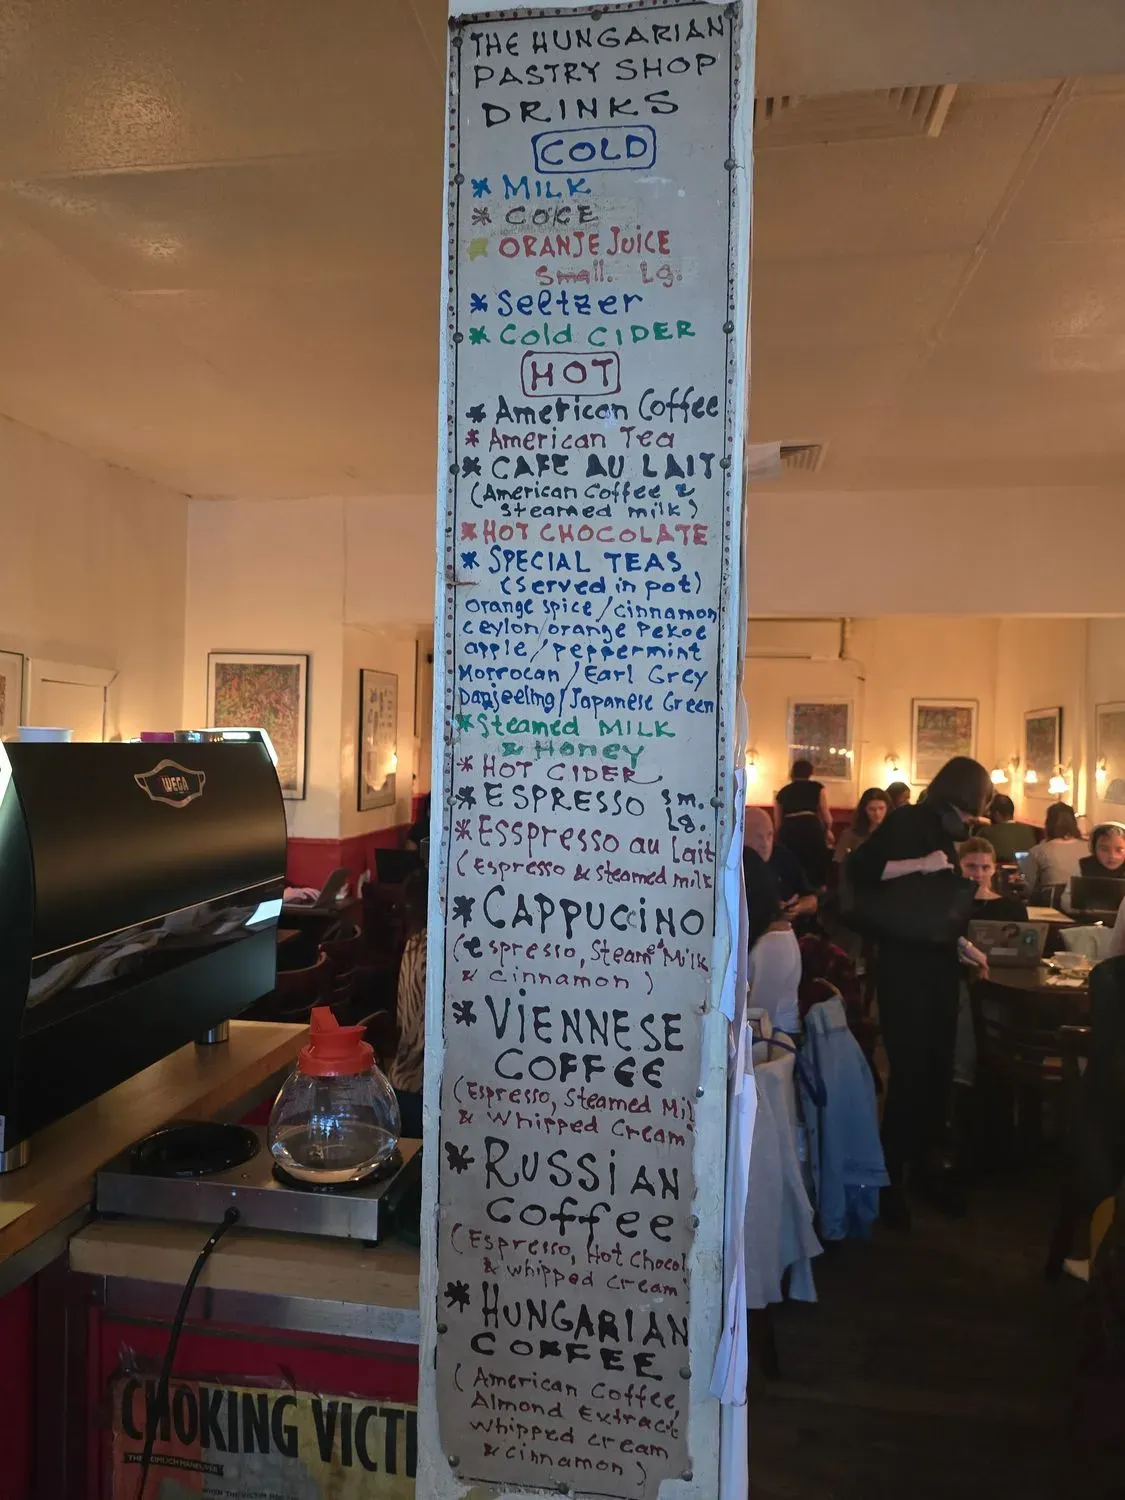 THE HUNGARIAN
PASTRY SHOP
DRINKS
COLD
* MILK
* COKE
ORANJE JUICE
Small. Lg.
* Seltzer
* Cold CIDER
HOT
* American Coffee
* American Tea
* CAFE AU LAIT
(American Coffee &
steamed milk)
* HOT CHOCOLATE
* SPECIAL TEAS
(Served in pot)
orange spice/cinnamon
ceylon/orange Pekoe
apple/peppermint
Morrocan/Earl Grey
Darjeeling/Japanese Green
* Steamed MILK
& Honey
* HOT CIDER
* ESPRESSO Sm.
Lg.
* ESSpresso au lait
(Espresso & steamed milk
* CAPPUCCINO
(espresso, Steamed Milk
& cinnamon)
* VIENNESE
COFFEE
(Espresso, Steamed Mil
& Whipped Cream
* RUSSIAN
Coffee
(Espresso, Hot Chocol
& whipped cream
* HUNGARIAN
COFFEE
(American Coffee,
Almond Extract
whipped cream
& cinnamon)
WEGA
CHOKING VICTI